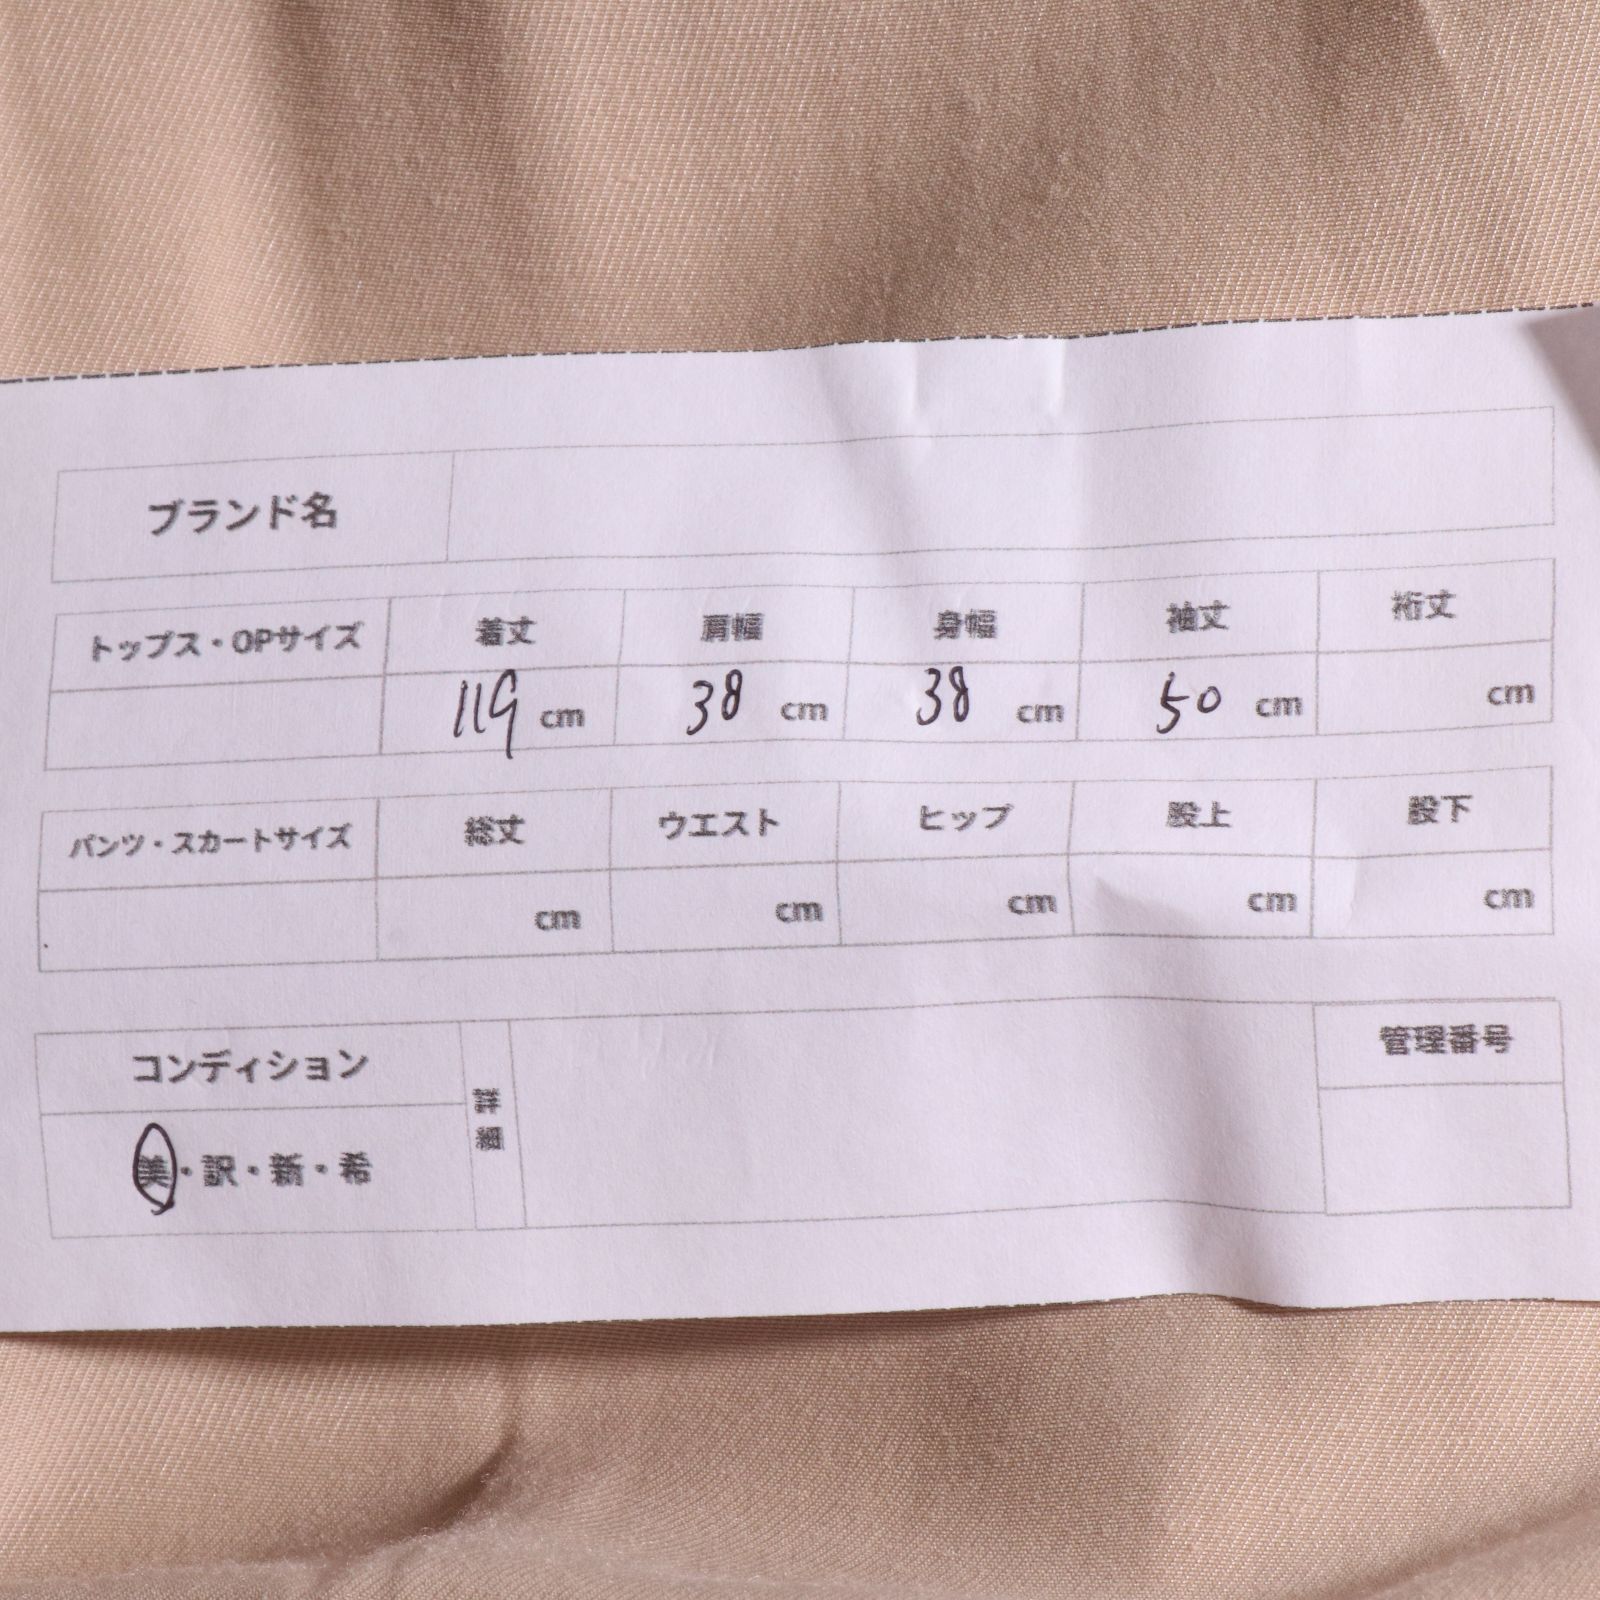 ブランド名
トップス・OPサイズ 着丈 肩幅 身幅 袖丈 裄丈
119 cm 38 cm 38 cm 50 cm cm
パンツ・スカートサイズ 総丈 ウエスト ヒップ 股上 股下
cm cm cm cm cm
コンディション 詳細 管理番号
美・訳・新・希